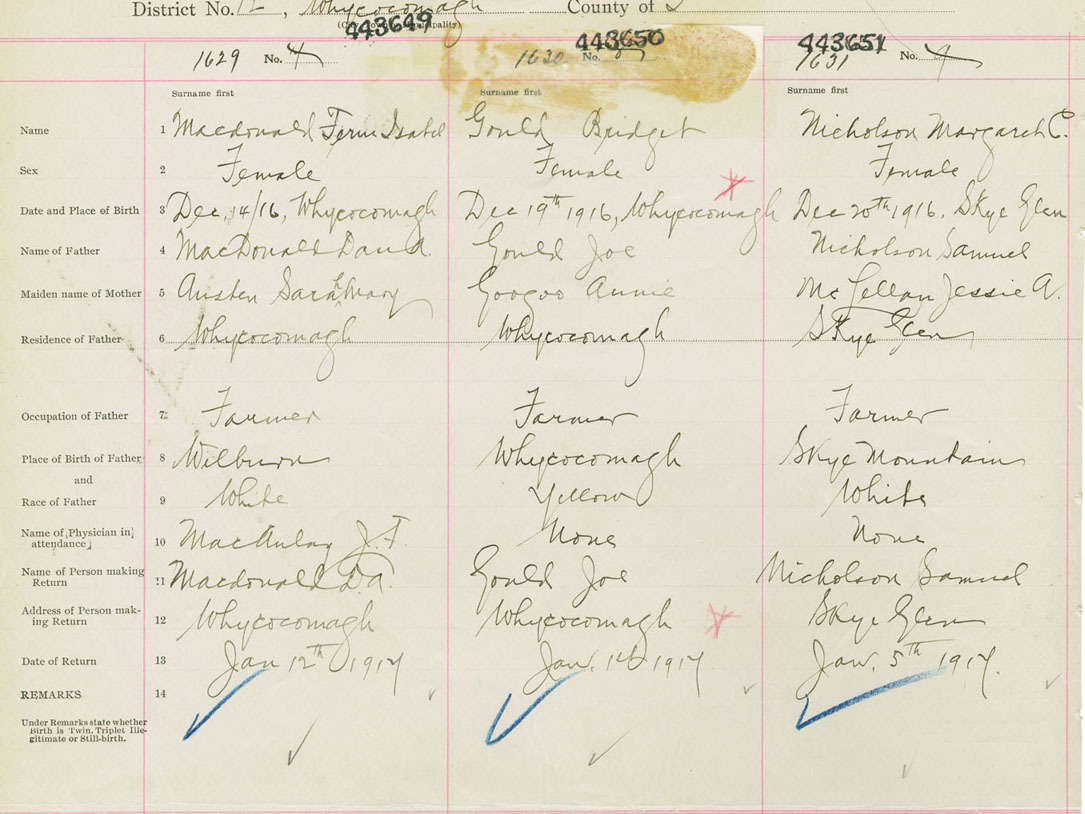 District No. 12, Whycocomagh County of
443649 443650 443651
1629 No. 4 1630 No. 1631 No. 4
Surname first Surname first Surname first
Name 1 Macdonald Isabel Gould Bridget Nicholson Margaret C.
Sex 2 Female Female Female
Date and Place of Birth 3 Dec, 14/16, Whycocomagh Dec 19th 1916, Whycocomagh Dec 20th 1916. Skye Glen
Name of Father 4 MacDonald David. Gould Joe Nicholson Samuel
Maiden name of Mother 5 Austen Sarah Mary Googoo Annie Mc Lellan Jessie A.
Residence of Father 6 Whycocomagh Whycocomagh Skye Glen
Occupation of Father 7 Farmer Farmer Farmer
Place of Birth of Father 8 Wilburn Whycocomagh Skye Mountain
and
Race of Father 9 White Yellow White
Name of [Physician in] 10 MacAulay J. F. None None
attendance]
Name of Person making 11 Macdonald D.A. Gould Joe Nicholson Samuel
Return
Address of Person mak- 12 Whycocomagh Whycocomagh Skye Glen
ing Return
Date of Return 13 Jan 12th 1917 Jan. 1917 Jan. 5th 1917.
REMARKS 14
Under Remarks state whether
Birth is Twin, Triplet Ille-
gitimate or Still-birth.